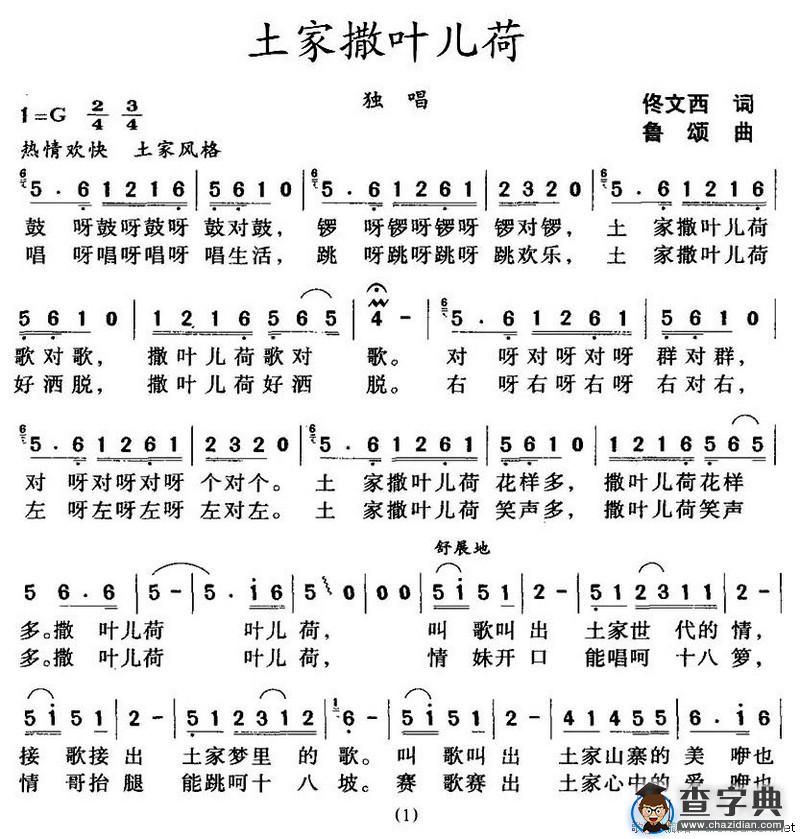 土家撒叶儿荷
独 唱
1=G 2/4 3/4
佟文西 词
鲁 颂 曲
热情欢快 土家风格
5·6 1216 5610 5·6 1261 2320 5·6 1216
鼓 呀鼓呀鼓呀 鼓对鼓， 锣 呀锣呀锣呀 锣对锣， 土 家撒叶儿荷
唱 呀唱呀唱呀 唱生活， 跳 呀跳呀跳呀 跳欢乐， 土 家撒叶儿荷
5610 1216 565 4- 5·6 1261 5610
歌对歌， 撒叶儿荷歌对 歌。 对 呀对呀对呀 群对群，
好洒脱， 撒叶儿荷好洒 脱。 右 呀右呀右呀 右对右，
5·6 1261 2320 5·6 1261 5610 1216 565
对 呀对呀对呀 个对个。 土 家撒叶儿荷 花样多， 撒叶儿荷花样
左 呀左呀左呀 左对左。 土 家撒叶儿荷 笑声多， 撒叶儿荷笑声
舒展地
5 6·6 5- 5·i6 500 00 5i51 2- 512311 2-
多。撒 叶儿荷 叶儿荷， 叫歌叫出 土家世代的情，
多。撒 叶儿荷 叶儿荷， 情妹开口 能唱呵十八箩，
5i51 2- 512312 6- 5i51 2- 414555 6·552
接歌接出 土家梦里的歌。 叫歌叫出 土家山寨的美咿也
情哥抬腿 能跳呵十八坡。 赛歌赛出 土家心中的爱咿也
(1)
查字典
www.chazidian.com